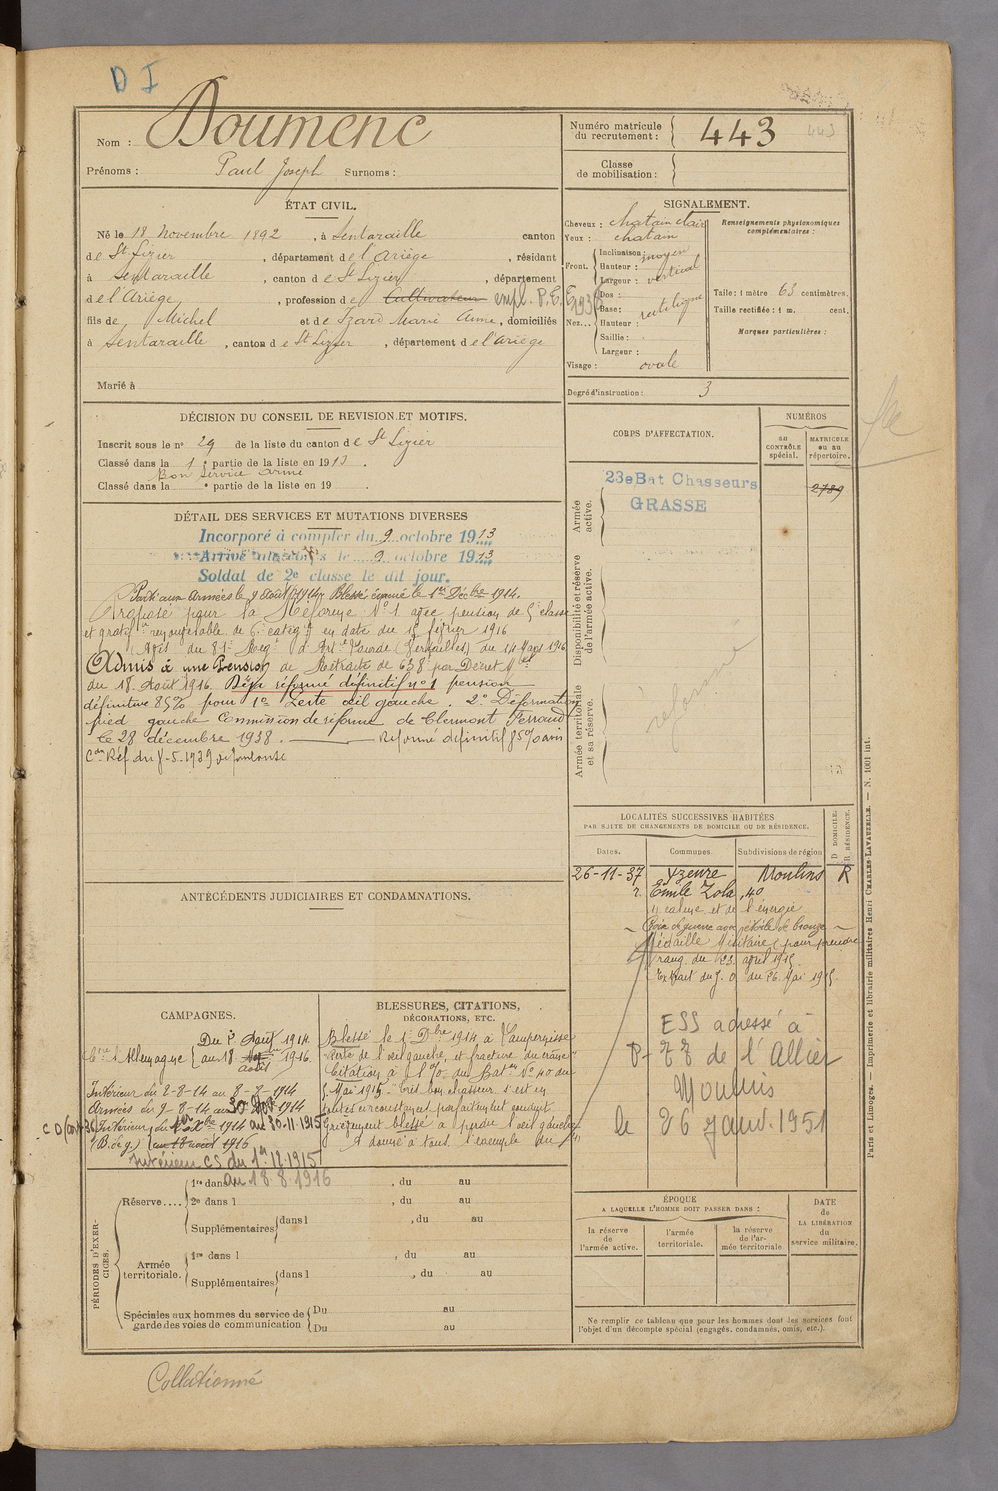 D I
Nom : Doumenc
Prénoms : Paul Joseph Surnoms :
Numéro matricule du recrutement : 443
443
Classe de mobilisation :
ÉTAT CIVIL.
Né le 18 Novembre 1892, à Sentaraille canton
de St Lizier, département de l'Ariège, résidant
à Sentaraille, canton de St Lizier, département
de l'Ariège, profession de Cultivateur empl. P.E.
fils de Michel et de Izard Marie Anne, domiciliés
à Sentaraille, canton de St Lizier, département de l'Ariège
Marié à
SIGNALEMENT.
Cheveux : chatain clair
Yeux : chatain
Front. Inclinaison : moyen
Hauteur : vertical
Largeur :
Nez... Dos :
Base : rectiligne
Hauteur :
Saillie :
Largeur :
Visage : ovale
Renseignements physionomiques complémentaires :
Taille : 1 mètre 63 centimètres.
Taille rectifiée : 1 m. cent.
Marques particulières :
Degré d'instruction : 3
DÉCISION DU CONSEIL DE REVISION ET MOTIFS.
Inscrit sous le n° 29 de la liste du canton de St Lizier
Classé dans la 1e partie de la liste en 1913.
Bon service armé
Classé dans la e partie de la liste en 19 .
DÉTAIL DES SERVICES ET MUTATIONS DIVERSES
Incorporé à compter du 9 octobre 1913
Arrivé au corps le 9 octobre 1913
Soldat de 2e classe le dit jour.
Parti aux armées le 9 Août 1914 Blessé, évacué le 1er Décbre 1914.
Proposé pour la Réforme N° 1 avec pension de 5e classe
et graton renouvelable de 6e catégie en date du 15 février 1916
(Avis du 81e Regt d'Artie Lourde (Versailles) du 14 Mars 1916
Admis à une Pension de Retraite de 638f par Décret Mel
du 18 Août 1916. Déjà réformé définitif n° 1 pension
définitive 85% pour 1° Perte œil gauche. 2° Déformation
pied gauche Commission de réforme de Clermont Ferrand
le 28 décembre 1938. — Réformé définitif 85% avis
Con Réf. du 8-5-1939 de Toulouse
CORPS D'AFFECTATION.
NUMÉROS
au CONTRÔLE spécial.
MATRICULE ou au répertoire.
Armée active.
23e Bat Chasseurs
GRASSE
2789
Disponibilité et réserve de l'armée active.
réformé
Armée territoriale et sa réserve.
LOCALITÉS SUCCESSIVES HABITÉES
PAR SUITE DE CHANGEMENTS DE DOMICILE OU DE RÉSIDENCE.
Dates. Communes. Subdivisions de région
D DOMICILE. R RÉSIDENCE.
26-11-37 Yzeure Moulins R
r. Emile Zola, 40
calme et de l'énergie
Croix de guerre avec étoile de bronze
Médaille Militaire (pour prendre
rang du 23 avril 1915
Extrait du J. O. du 26 Mai 1915.
ESS adressé à
P- de l'Allier
Moulins
le 26 janv. 1951
ANTÉCÉDENTS JUDICIAIRES ET CONDAMNATIONS.
CAMPAGNES.
Du 2 Août 1914
Ctre l'Allemagne au 18 août 1916.
Intérieur du 2-8-14 au 8-8-1914
Armées du 9-8-14 au 30 Nov 1914
Intérieur du 1er Xbre 1914 au 30-11-1915
(B. de g.) au 18 août 1916
Intérieur CS du 1er 12-1915
au 18 8-1916
BLESSURES, CITATIONS, DÉCORATIONS, ETC.
Blessé le 1er Dbre 1914 à
Perte de l'œil gauche, et fracture du crâne
Citation à l'O. du Baton N° 40 du
5 Mai 1915 - Très bon chasseur s'est en
toutes circonstances parfaitement conduit
Grièvement blessé a perdu l'œil gauche
A donné à tous l'exemple du (1)
PÉRIODES D'EXERCICES.
Réserve.... 1re dans l , du au
2e dans l , du au
Supplémentaires dans l , du au
Armée territoriale. 1re dans l , du au
Supplémentaires dans l , du au
Spéciales aux hommes du service de garde des voies de communication Du au
Du au
ÉPOQUE
A LAQUELLE L'HOMME DOIT PASSER DANS :
la réserve de l'armée active.
l'armée territoriale.
la réserve de l'armée territoriale
DATE de LA LIBÉRATION du service militaire.
Ne remplir ce tableau que pour les hommes dont les services font
l'objet d'un décompte spécial (engagés, condamnés, omis, etc.).
Paris et Limoges. — Imprimerie et librairie militaires Henri CHARLES-LAVAUZELLE. — N. 1001 int.
Collationné